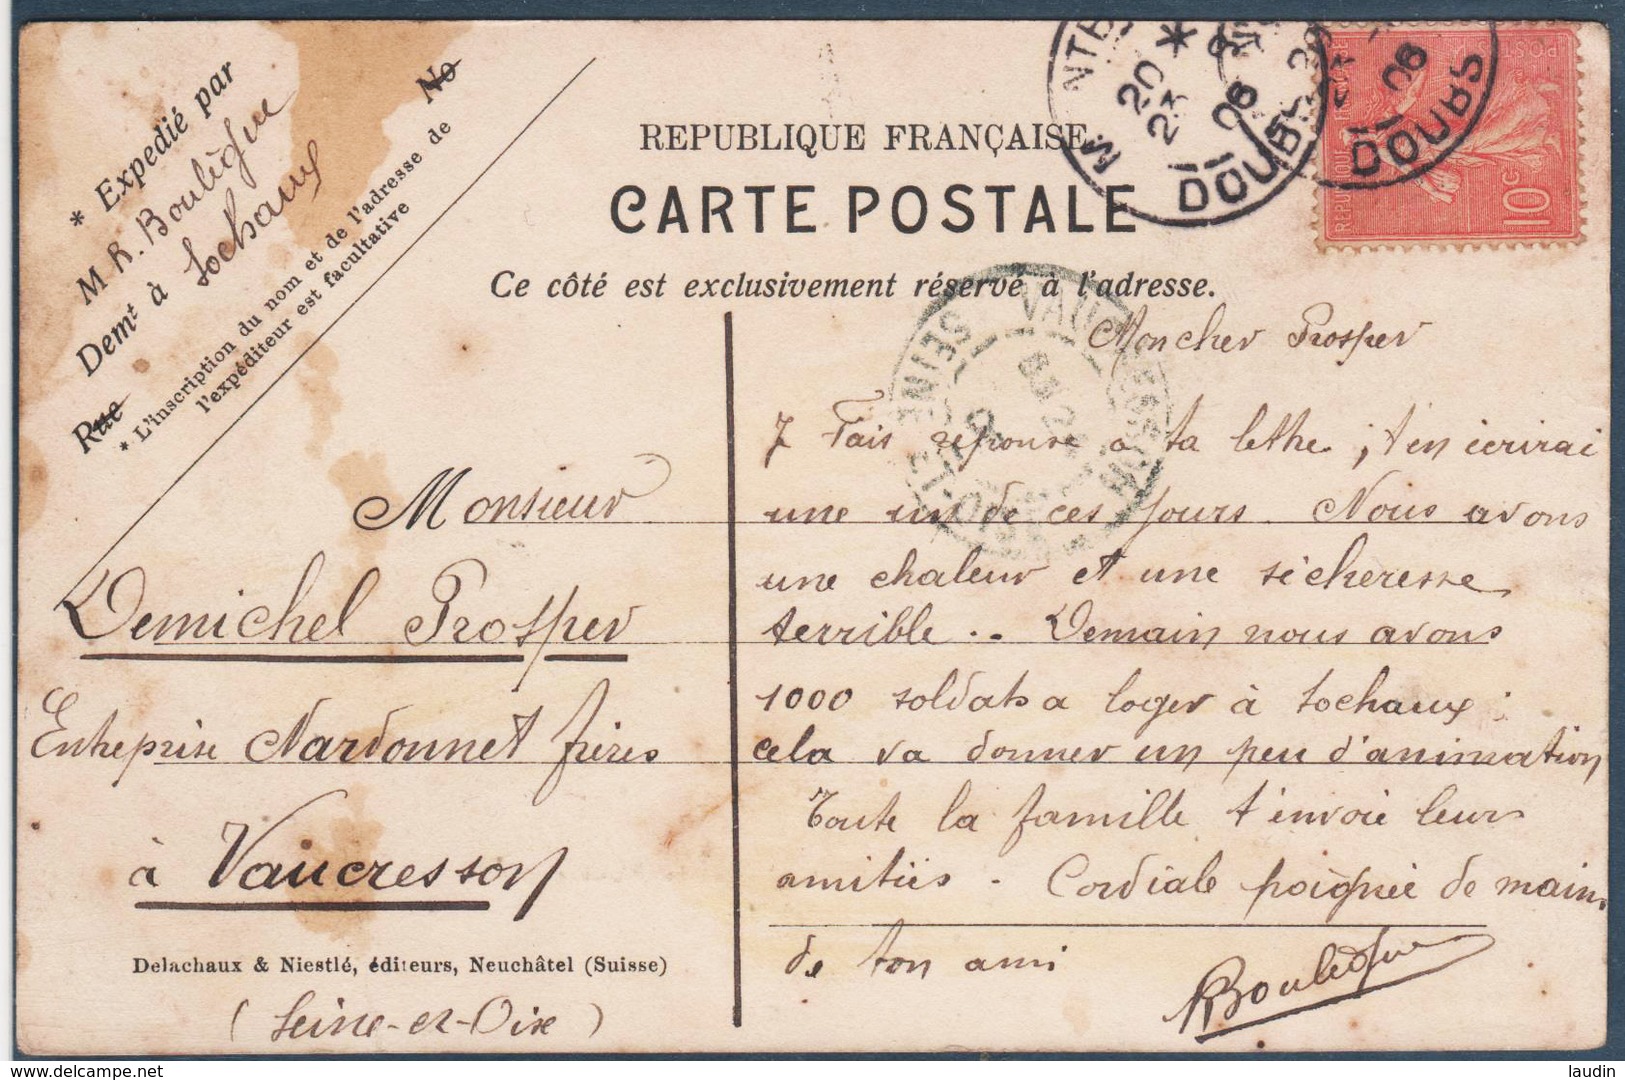 * Expedié par
No
M R. Boulègue
Demt à Sochaux
Rue
* L'inscription du nom et de l'adresse de
l'expéditeur est facultative
REPUBLIQUE FRANÇAISE
CARTE POSTALE
Ce côté est exclusivement réservé à l'adresse.
DOUBS
DOUBS
POSTES
REPUBLIQUE FRANÇAISE
10 C
Mon cher Prosper
J Fais reponse a ta lethe, j t'en ecrirai
une un de ces jours. Nous avons
une chaleur et une sécheresse
terrible .. Demain nous avons
1000 soldats a loger à Sochaux :
cela va donner un peu d'animation
Toute la famille t'envoie leurs
amitiés - Cordiale poignée de main.
de ton ami
RBoulègue
Monsieur
Demichel Prosper
Entreprise Nardonnet frères
à Vaucresson
Delachaux & Niestlé, éditeurs, Neuchâtel (Suisse)
( Seine-et-Oise )
delcampe.net
laudin